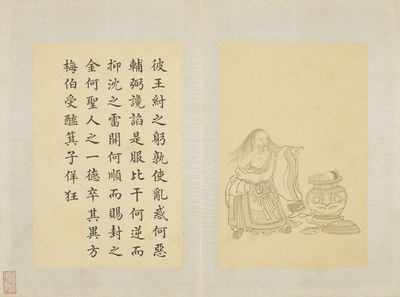 彼王紂之躬孰使亂惑何惡
輔弼讒諂是服比干何逆而
抑沈之雷開何順而賜封之
金何聖人之一德卒其異方
梅伯受醢箕子佯狂